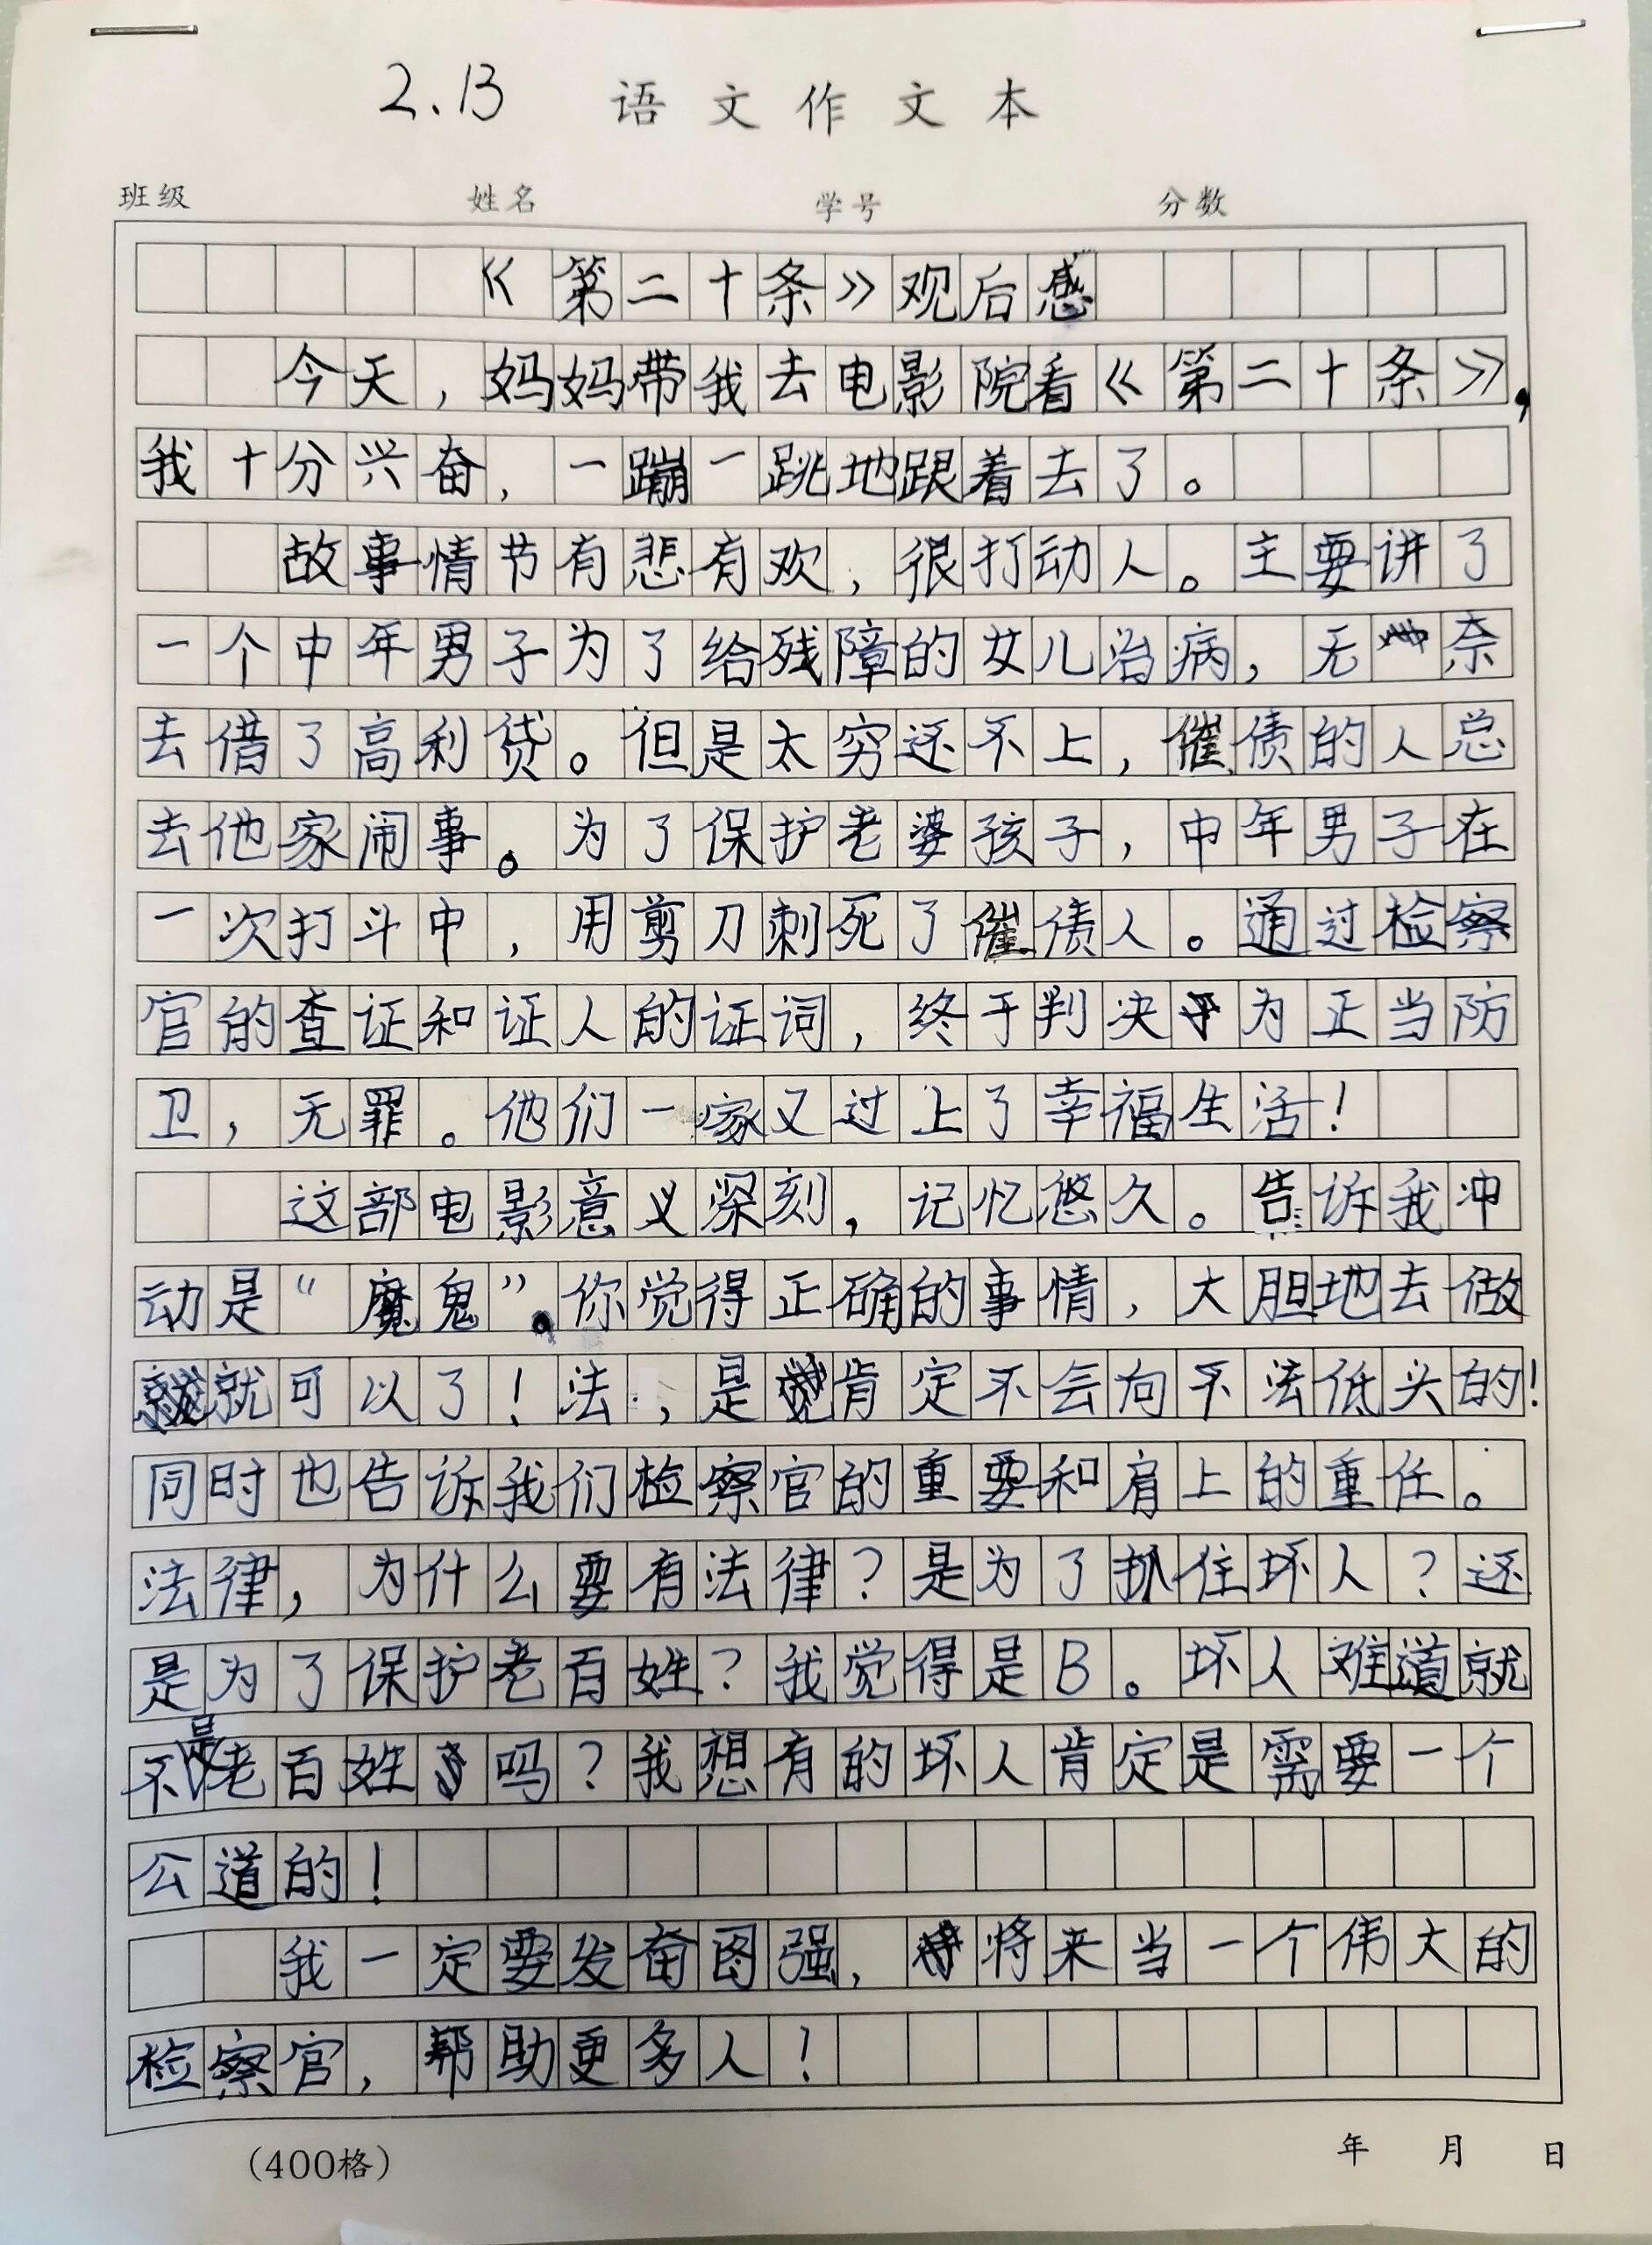 2.13 语文作文本
班级 姓名 学号 分数
《第二十条》观后感
今天，妈妈带我去电影院看《第二十条》，
我十分兴奋，一蹦一跳地跟着去了。
故事情节有悲有欢，很打动人。主要讲了
一个中年男子为了给残障的女儿治病，无奈
去借了高利贷。但是太穷还不上，催债的人总
去他家闹事。为了保护老婆孩子，中年男子在
一次打斗中，用剪刀刺死了催债人。通过检察
官的查证和证人的证词，终于判决为正当防
卫，无罪。他们一家又过上了幸福生活！
这部电影意义深刻，记忆悠久。告诉我冲
动是“魔鬼”。你觉得正确的事情，大胆地去做
就可以了！法，是肯定不会向不法低头的！
同时也告诉我们检察官的重要和肩上的重任。
法律，为什么要有法律？是为了抓住坏人？还
是为了保护老百姓？我觉得是B。坏人难道就
不是老百姓吗？我想有的坏人肯定是需要一个
公道的！
我一定要发奋图强，将来当一个伟大的
检察官，帮助更多人！
（400格） 年 月 日